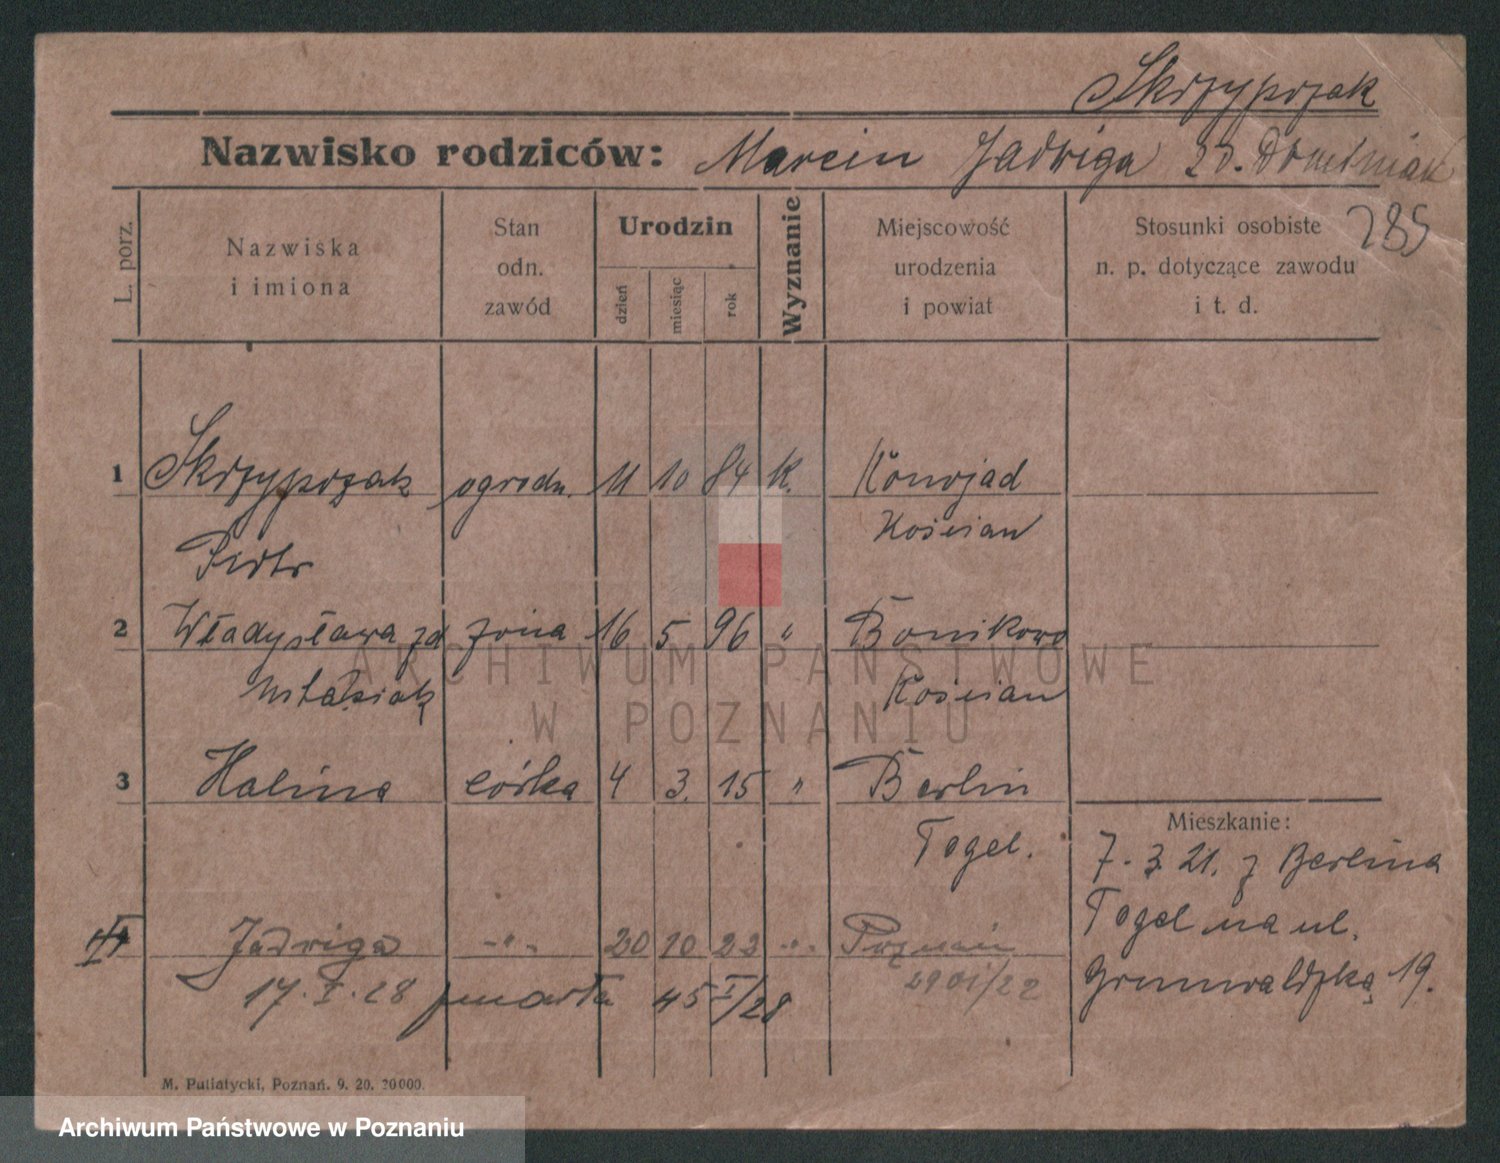 Skrzypczak
Nazwisko rodziców: Marcin Jadwiga zd.
285
L. porz.
Nazwiska i imiona
Stan odn. zawód
Urodzin
dzień
miesiąc
rok
Wyznanie
Miejscowość urodzenia i powiat
Stosunki osobiste n. p. dotyczące zawodu i t. d.
1 Skrzypczak ogrodn. 11 10 84 k. Konojad
Kościan
Piotr
2 Władysława zd żona 16 5 96 " Bonikowo
Kościan
3 Halina córka 4 3. 15 " Berlin
Tegel.
Mieszkanie:
7. 3. 21. z Berlina
Tegel na ul.
Grunwaldzką 19.
Jadwiga -"- 20 10 22 -"- Poznań
17. I. 28 zmarła 45 I/28
M. Putiatycki, Poznań. 9. 20. 20000.
ARCHIWUM PAŃSTWOWE
W POZNANIU
Archiwum Państwowe w Poznaniu